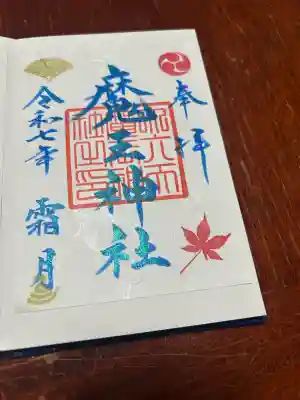 奉拝
魔王神社
令和七年 霜月